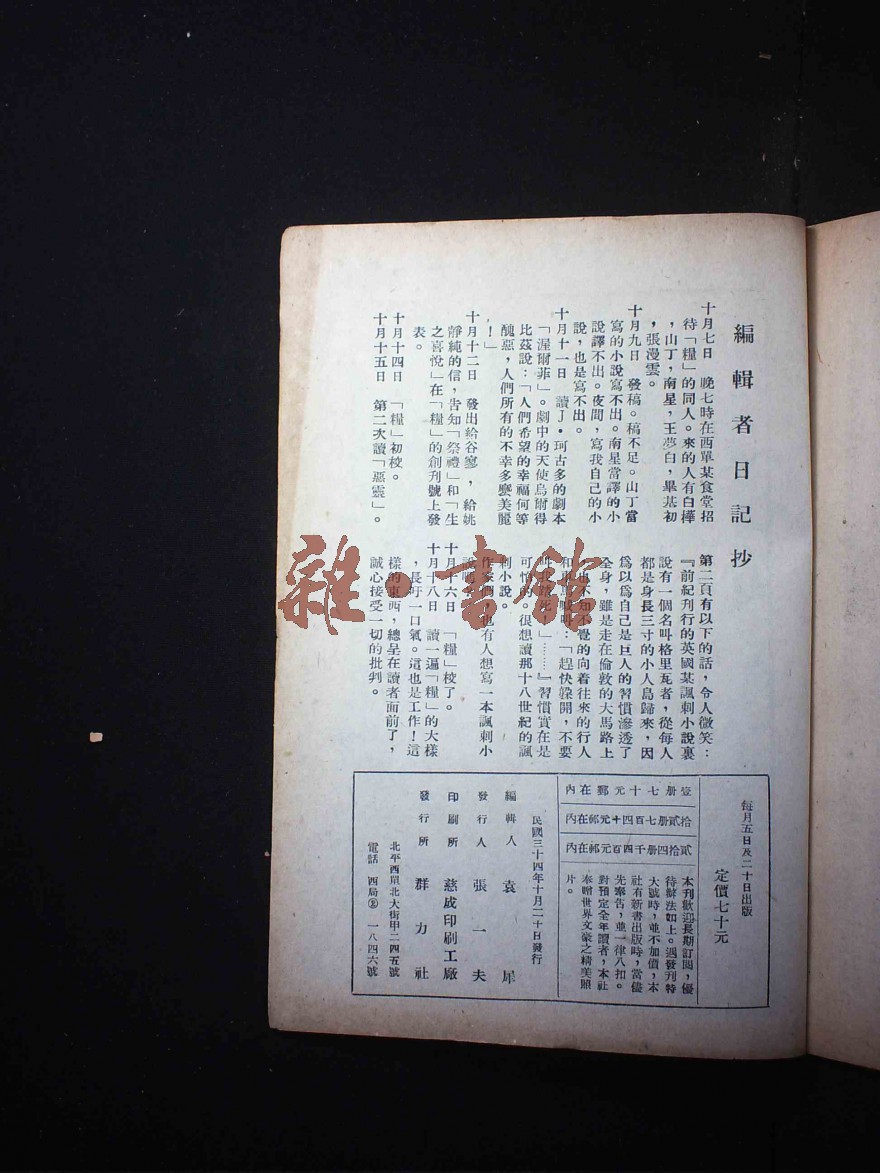 編輯者日記抄
十月七日　晚七時在西單某食堂招
待「糧」的同人。來的人有白樺
，山丁，南星，王夢白，畢基初
，張漫雲。
十月九日　發稿。稿不足。山丁當
寫的小說寫不出。南星當譯的小
說譯不出。夜間，寫我自己的小
說，也是寫不出。
十月十一日　讀J·珂古多的劇本
「渥爾菲」。劇中的天使烏爾得
比茲說：「人們希望的幸福何等
醜惡，人們所有的不幸多麼美麗
！」
十月十二日　發出給谷寥，給姚
靜純的信，告知「祭禮」和「生
之喜悅」在「糧」的創刊號上發
表。
十月十四日　「糧」初校。
十月十五日　第二次讀「惡靈」。
第二頁有以下的話，令人微笑：
『前紀刊行的英國某諷刺小說裏
說有一個名叫格里瓦者，從每人
都是身長三寸的小人島歸來，因
爲以爲自己是巨人的習慣滲透了
全身，雖是走在倫敦的大馬路上
，也不知不覺的向着往來的行人
和車馬喊叫：「趕快躱開，不要
死！」……』習慣實在是
可怕的。很想讀那十八世紀的諷
刺小說。
作家們，也有人想寫一本諷刺小
說嗎？
十月十六日　「糧」校了。
十月十八日　讀一遍「糧」的大樣
，長吁一口氣。這也是工作！這
樣的東西，總呈在讀者面前了，
誠心接受一切的批判。
每月五日及二十日出版
定價七十元
壹册七十元郵在內
拾貳册七百四十元郵在內
貳拾四册千四百元郵在內
本刊歡迎長期訂閱，優
待辦法如上。遇發刊特
大號時，並不加價，本
社有新書出版時，當儘
先奉告，並一律八扣。
對預定全年讀者，本社
奉贈世界文豪之精美照
片。
民國三十四年十月二十日發行
編輯人　袁犀
發行人　張一夫
印刷所　慈成印刷工廠
發行所　群力社
北平西單北大街甲二四五號
電話　西局②　一八四六號
雜·書館